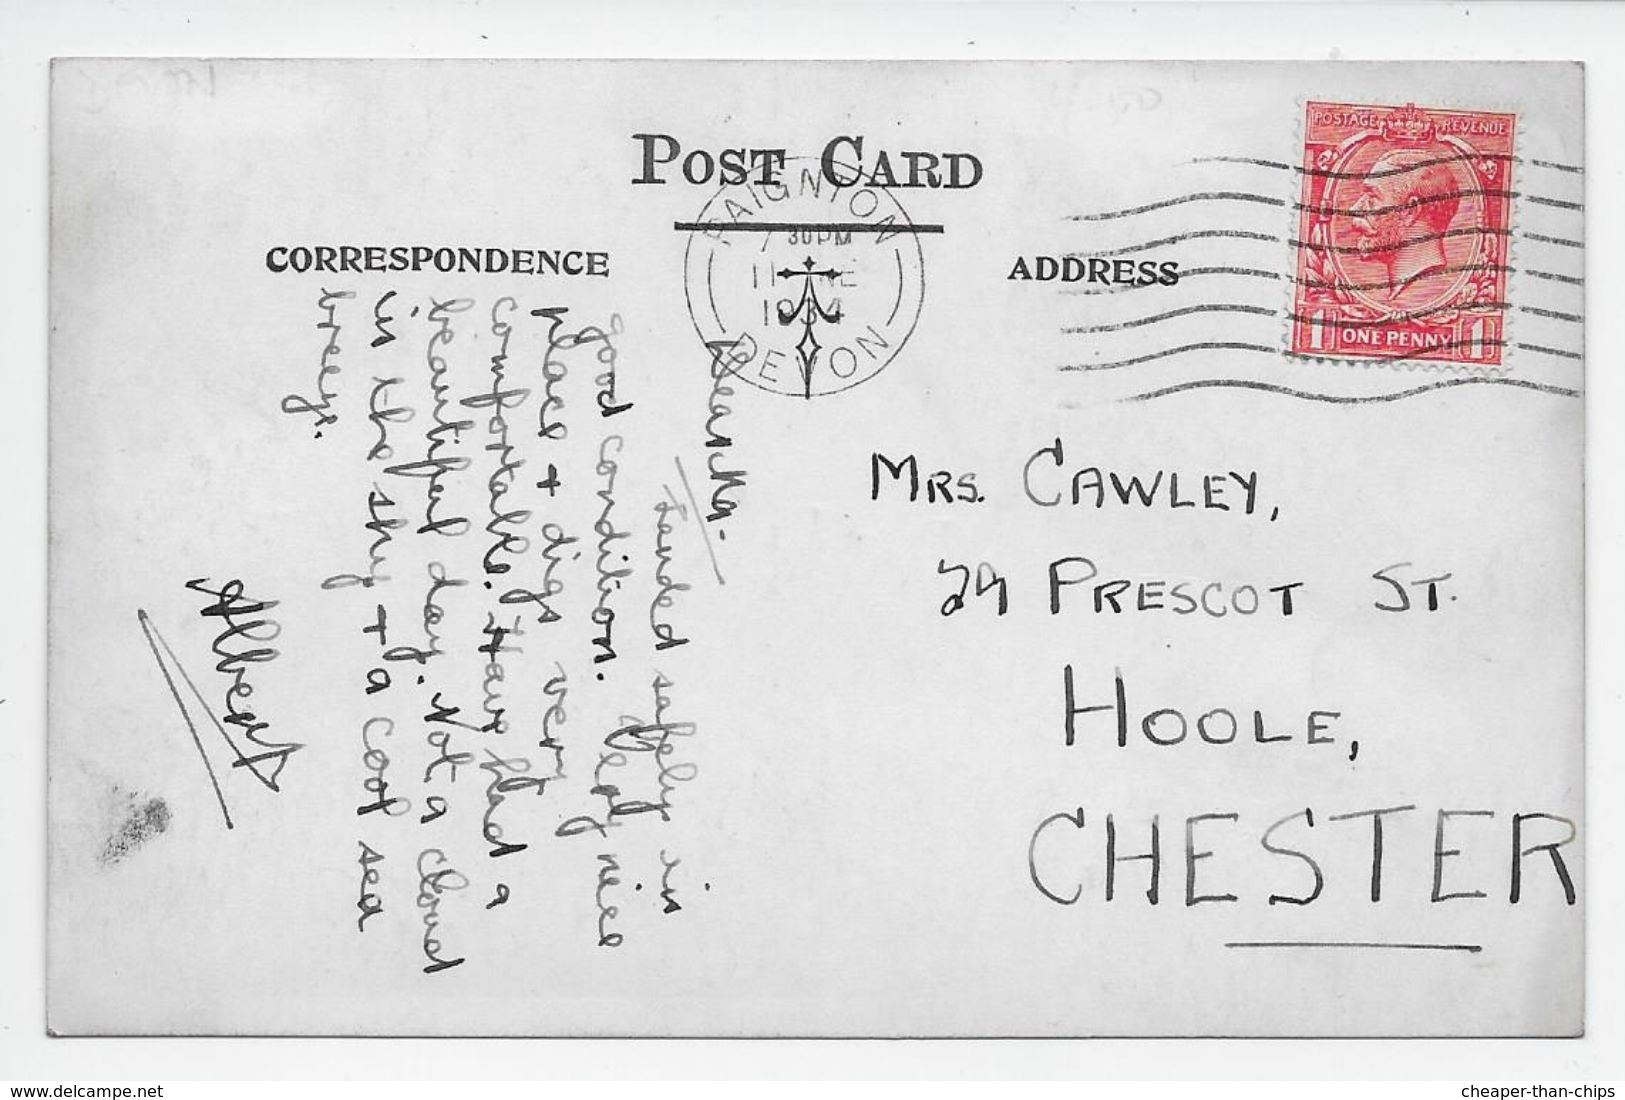 POST CARD
CORRESPONDENCE
ADDRESS
PAIGNTON
7 30 PM
11 JNE
1934
DEVON
POSTAGE REVENUE
1 ONE PENNY 1
Dear Ma.
Landed safely in
good condition. Very nice
place + digs very
comfortable. Have had a
beautiful day. Not a cloud
in the sky + a cool sea
breeze.
Albert
MRS. CAWLEY,
29 PRESCOT ST.
HOOLE,
CHESTER
delcampe.net
cheaper-than-chips